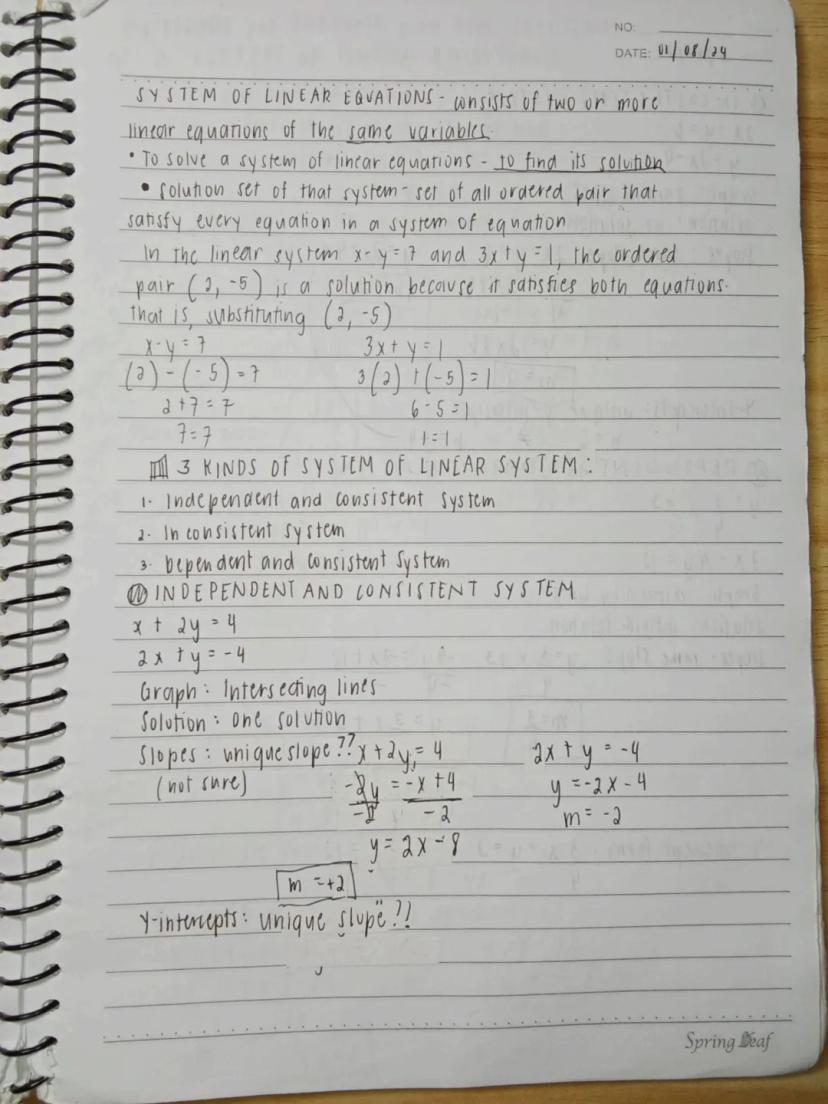 NO:
DATE: 01/08/24
SYSTEM OF LINEAR EQUATIONS - consists of two or more
linear equations of the same variables.
• To solve a system of linear equations - to find its solution
• solution set of that system - set of all ordered pair that
satisfy every equation in a system of equation
In the linear system x - y = 7 and 3x + y = 1, the ordered
pair (2, -5) is a solution because it satisfies both equations.
that is, substituting (2, -5)
x - y = 7 3x + y = 1
(2) - (-5) = 7 3(2) + (-5) = 1
2 + 7 = 7 6 - 5 = 1
7 = 7 1 = 1
III 3 KINDS OF SYSTEM OF LINEAR SYSTEM:
1. Independent and consistent System
2. Inconsistent system
3. Dependent and consistent System
INDEPENDENT AND CONSISTENT SYSTEM
x + 2y = 4
2x + y = -4
Graph: Intersecting lines
Solution: one solution
Slopes: unique slope?? x + 2y = 4 2x + y = -4
(not sure) -2y = -x + 4 y = -2x - 4
-2 -2 m = -2
y = 2x - 8
m = +2
Y-intercepts: unique "slope"??
Spring Leaf